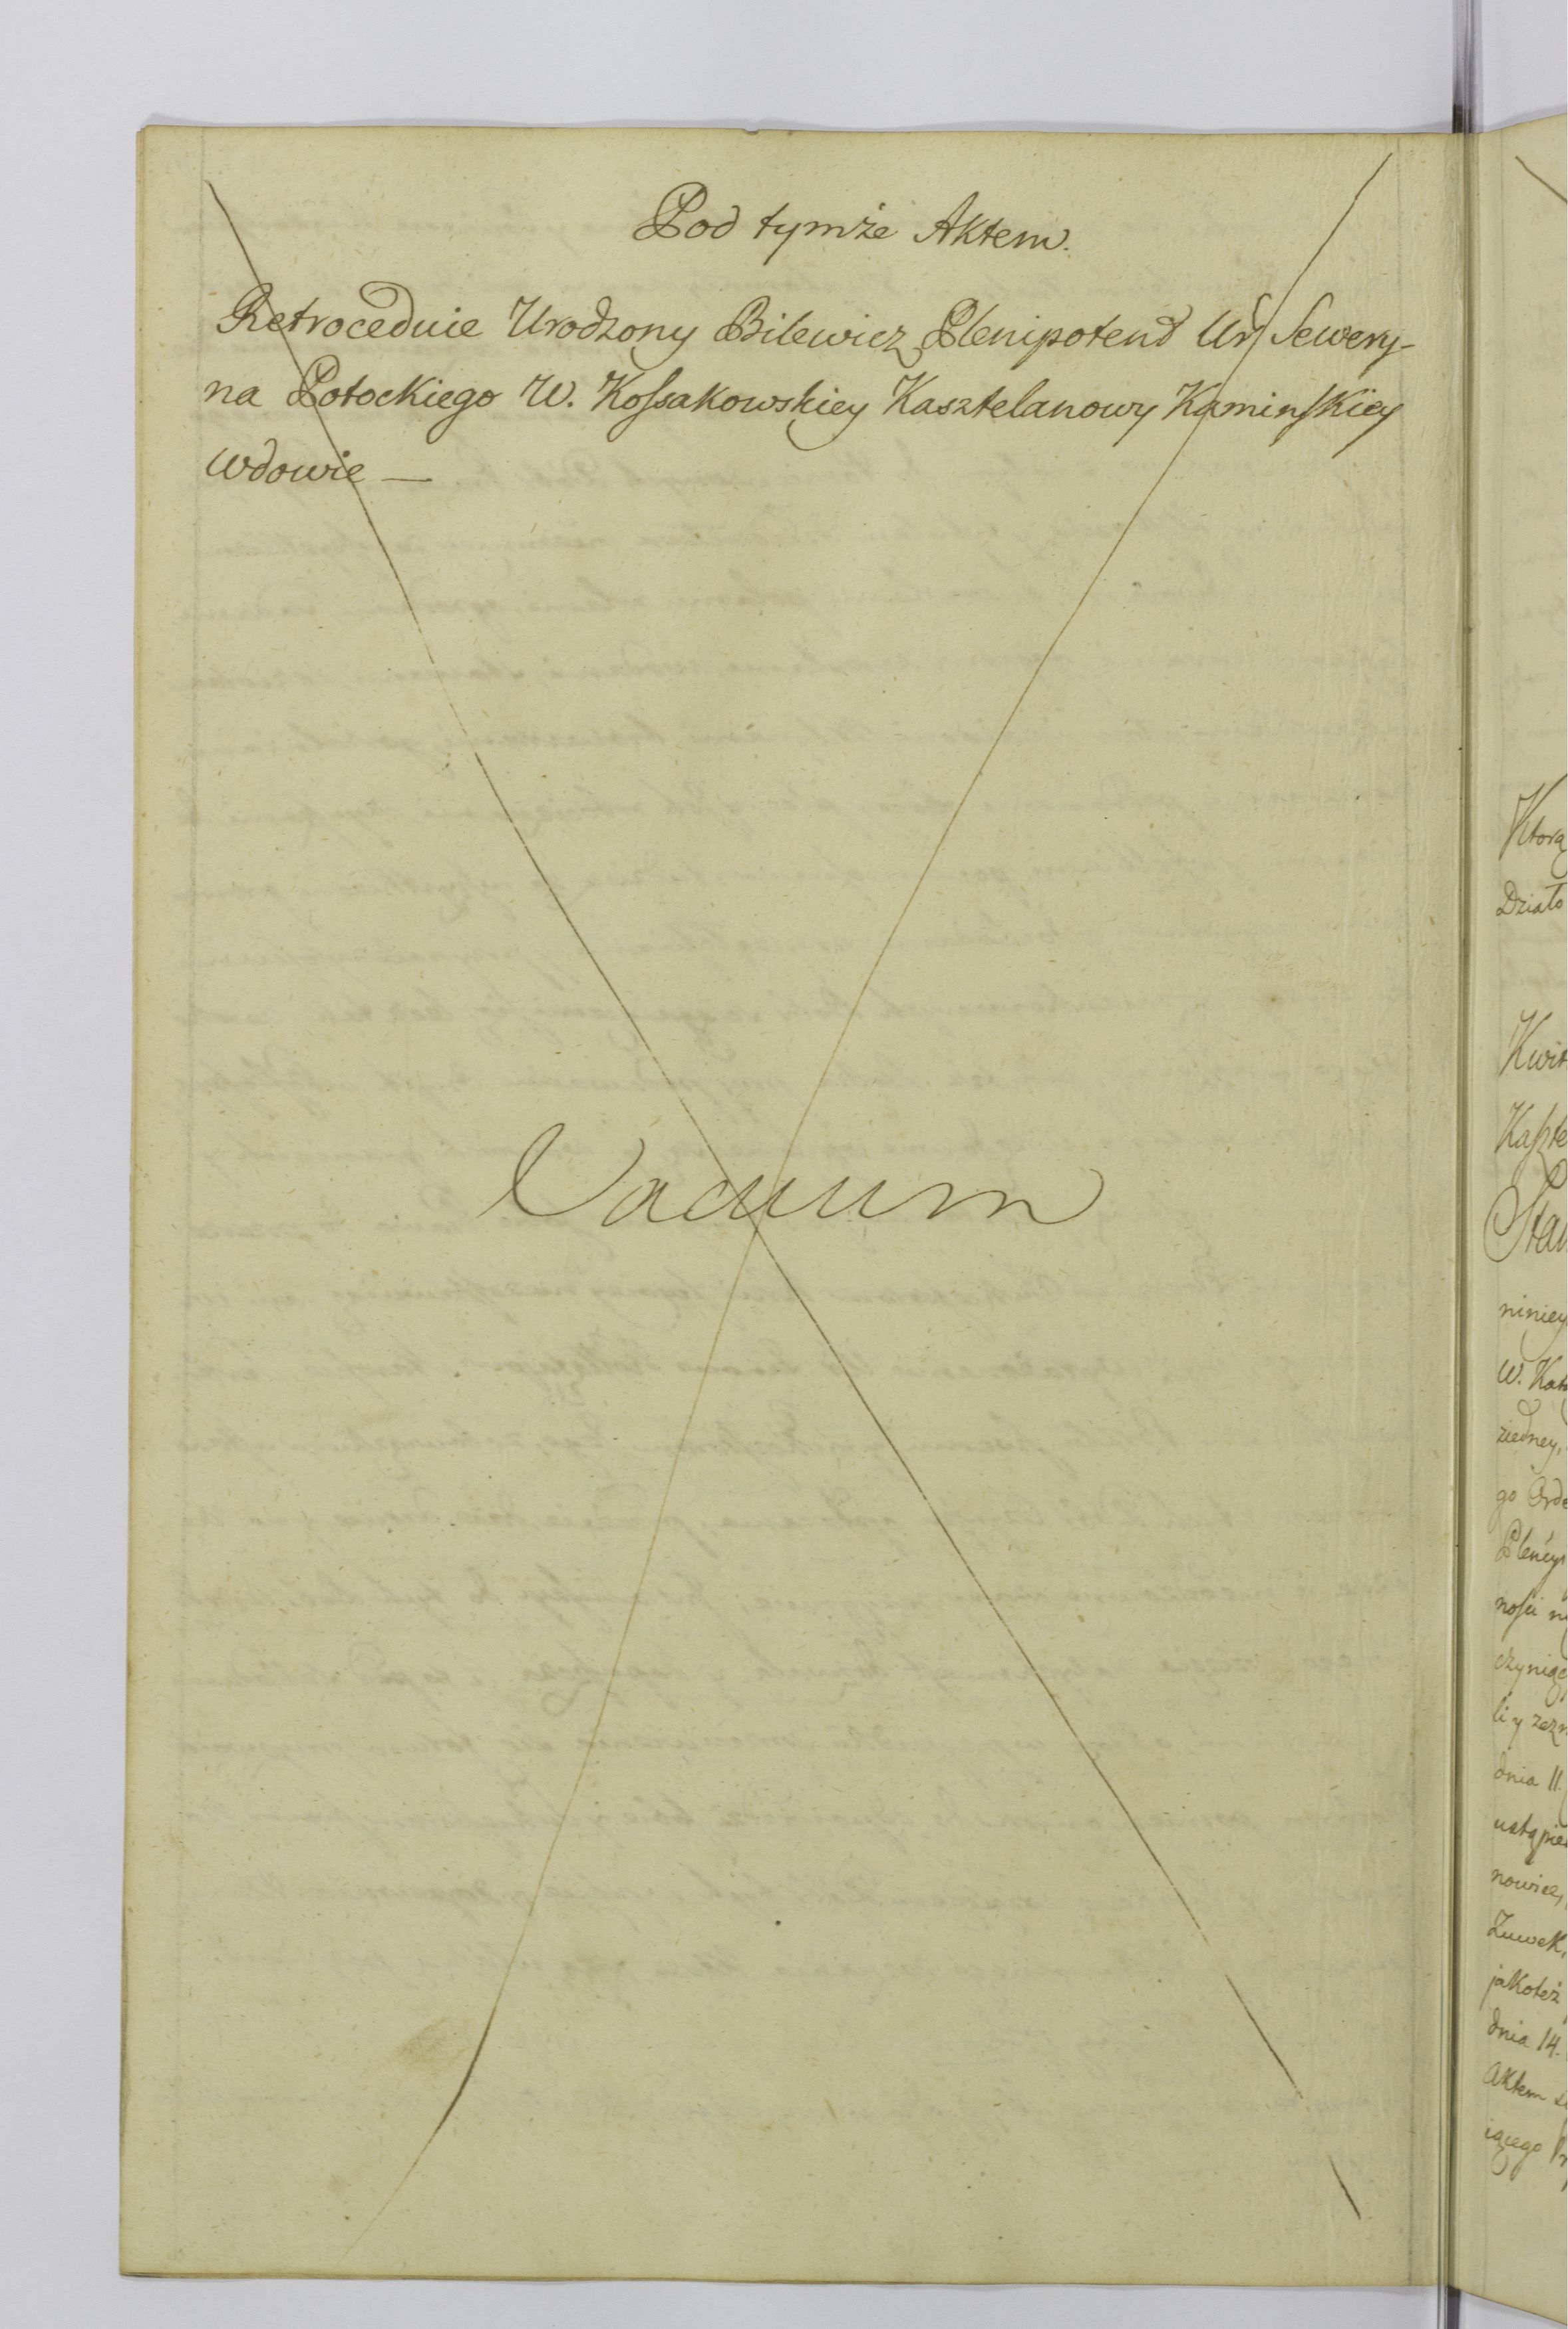 Pod tymże Aktem.
Retroceduie Urodzony Bilewicz Plenipotent Ur. Sewery-
na Potockiego W. Kossakowskiey Kasztelanowy Kaminskiey
wdowie —
Vacuum
Ktorą
Działo
Kwit
Kaszte
Stan
niniey
W. Kata
żiedney,
go Orde
nosci
czyniąc
li y zezn
dnia 11.
ustąpien
nowice,
Zuwek,
jakoteż
dnia 14.
Aktem
iącego